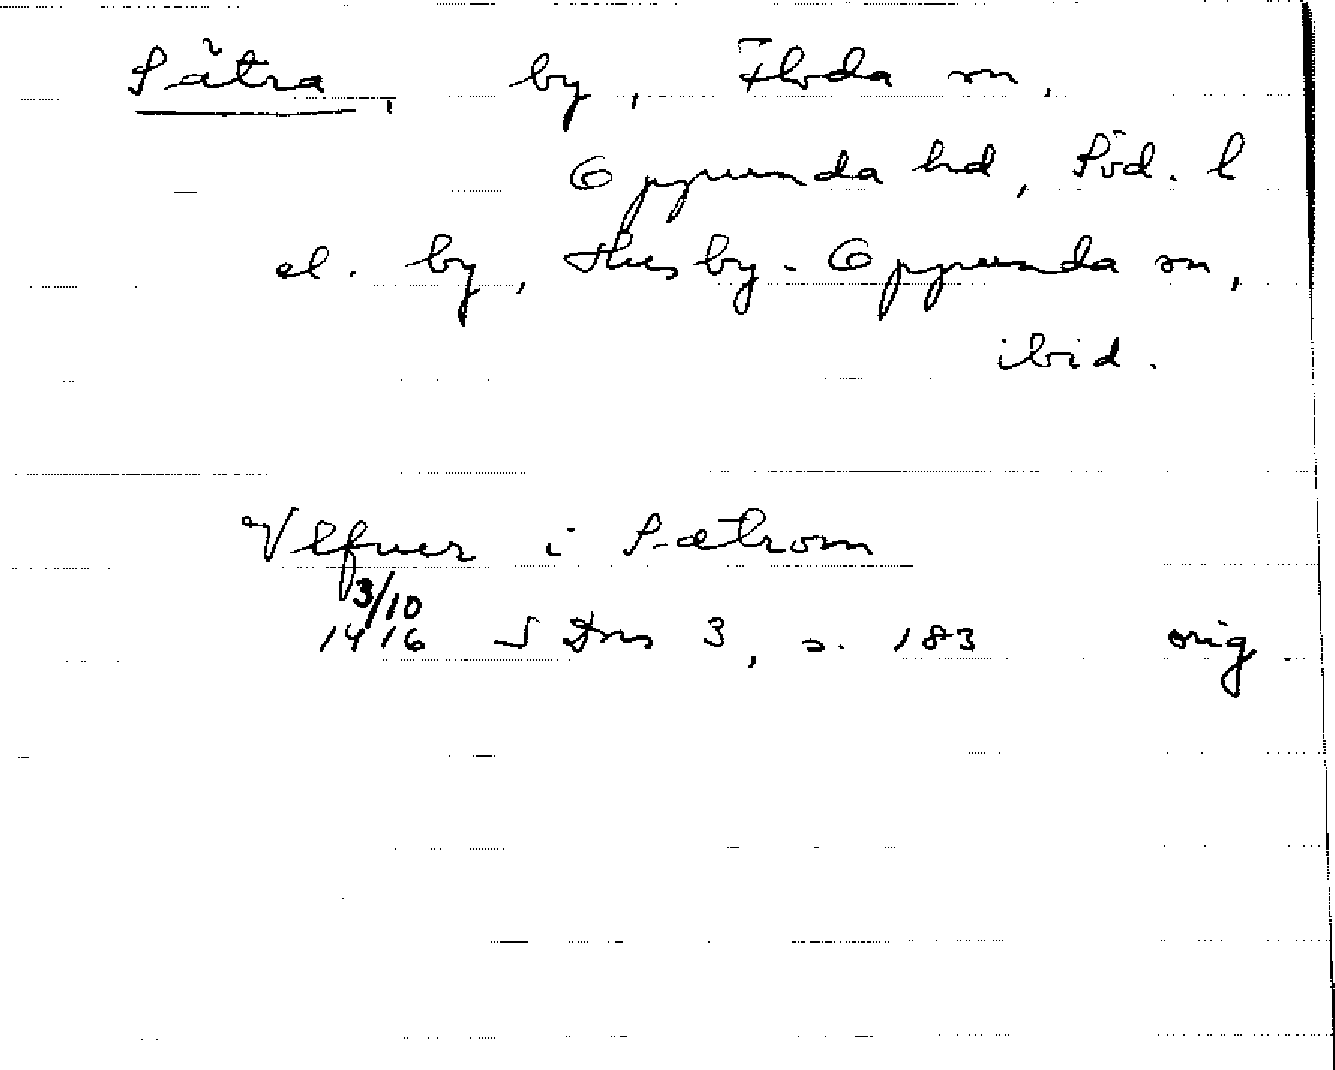 Sätra, by, Floda sn,
Oppunda hd, Söd. l
el. by, Husby-Oppunda sn,
ibid.
Vlfuer i Sætrom
3/10
1416 SDns 3, s. 183 orig.